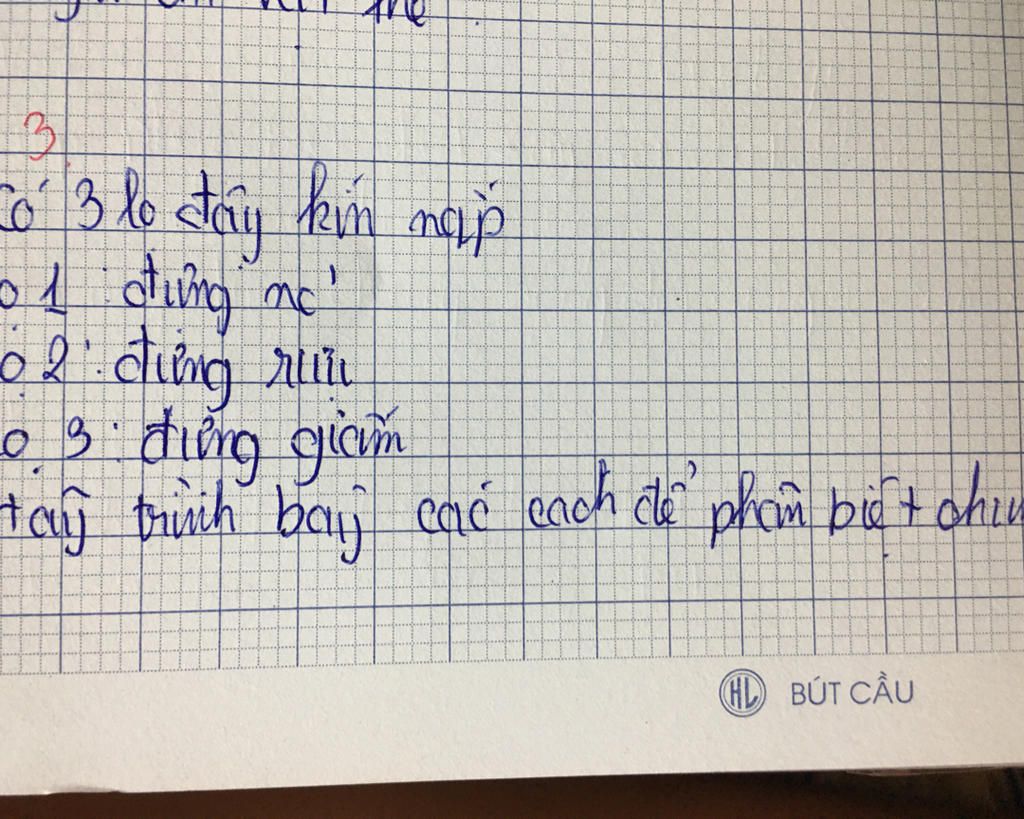 3
Có 3 lọ đậy kín nắp
lọ 1: đựng nc'
lọ 2: đựng rượu
lọ 3: đựng giấm
Hãy trình bày các cách để phân biệt chún
HL BÚT CẦU